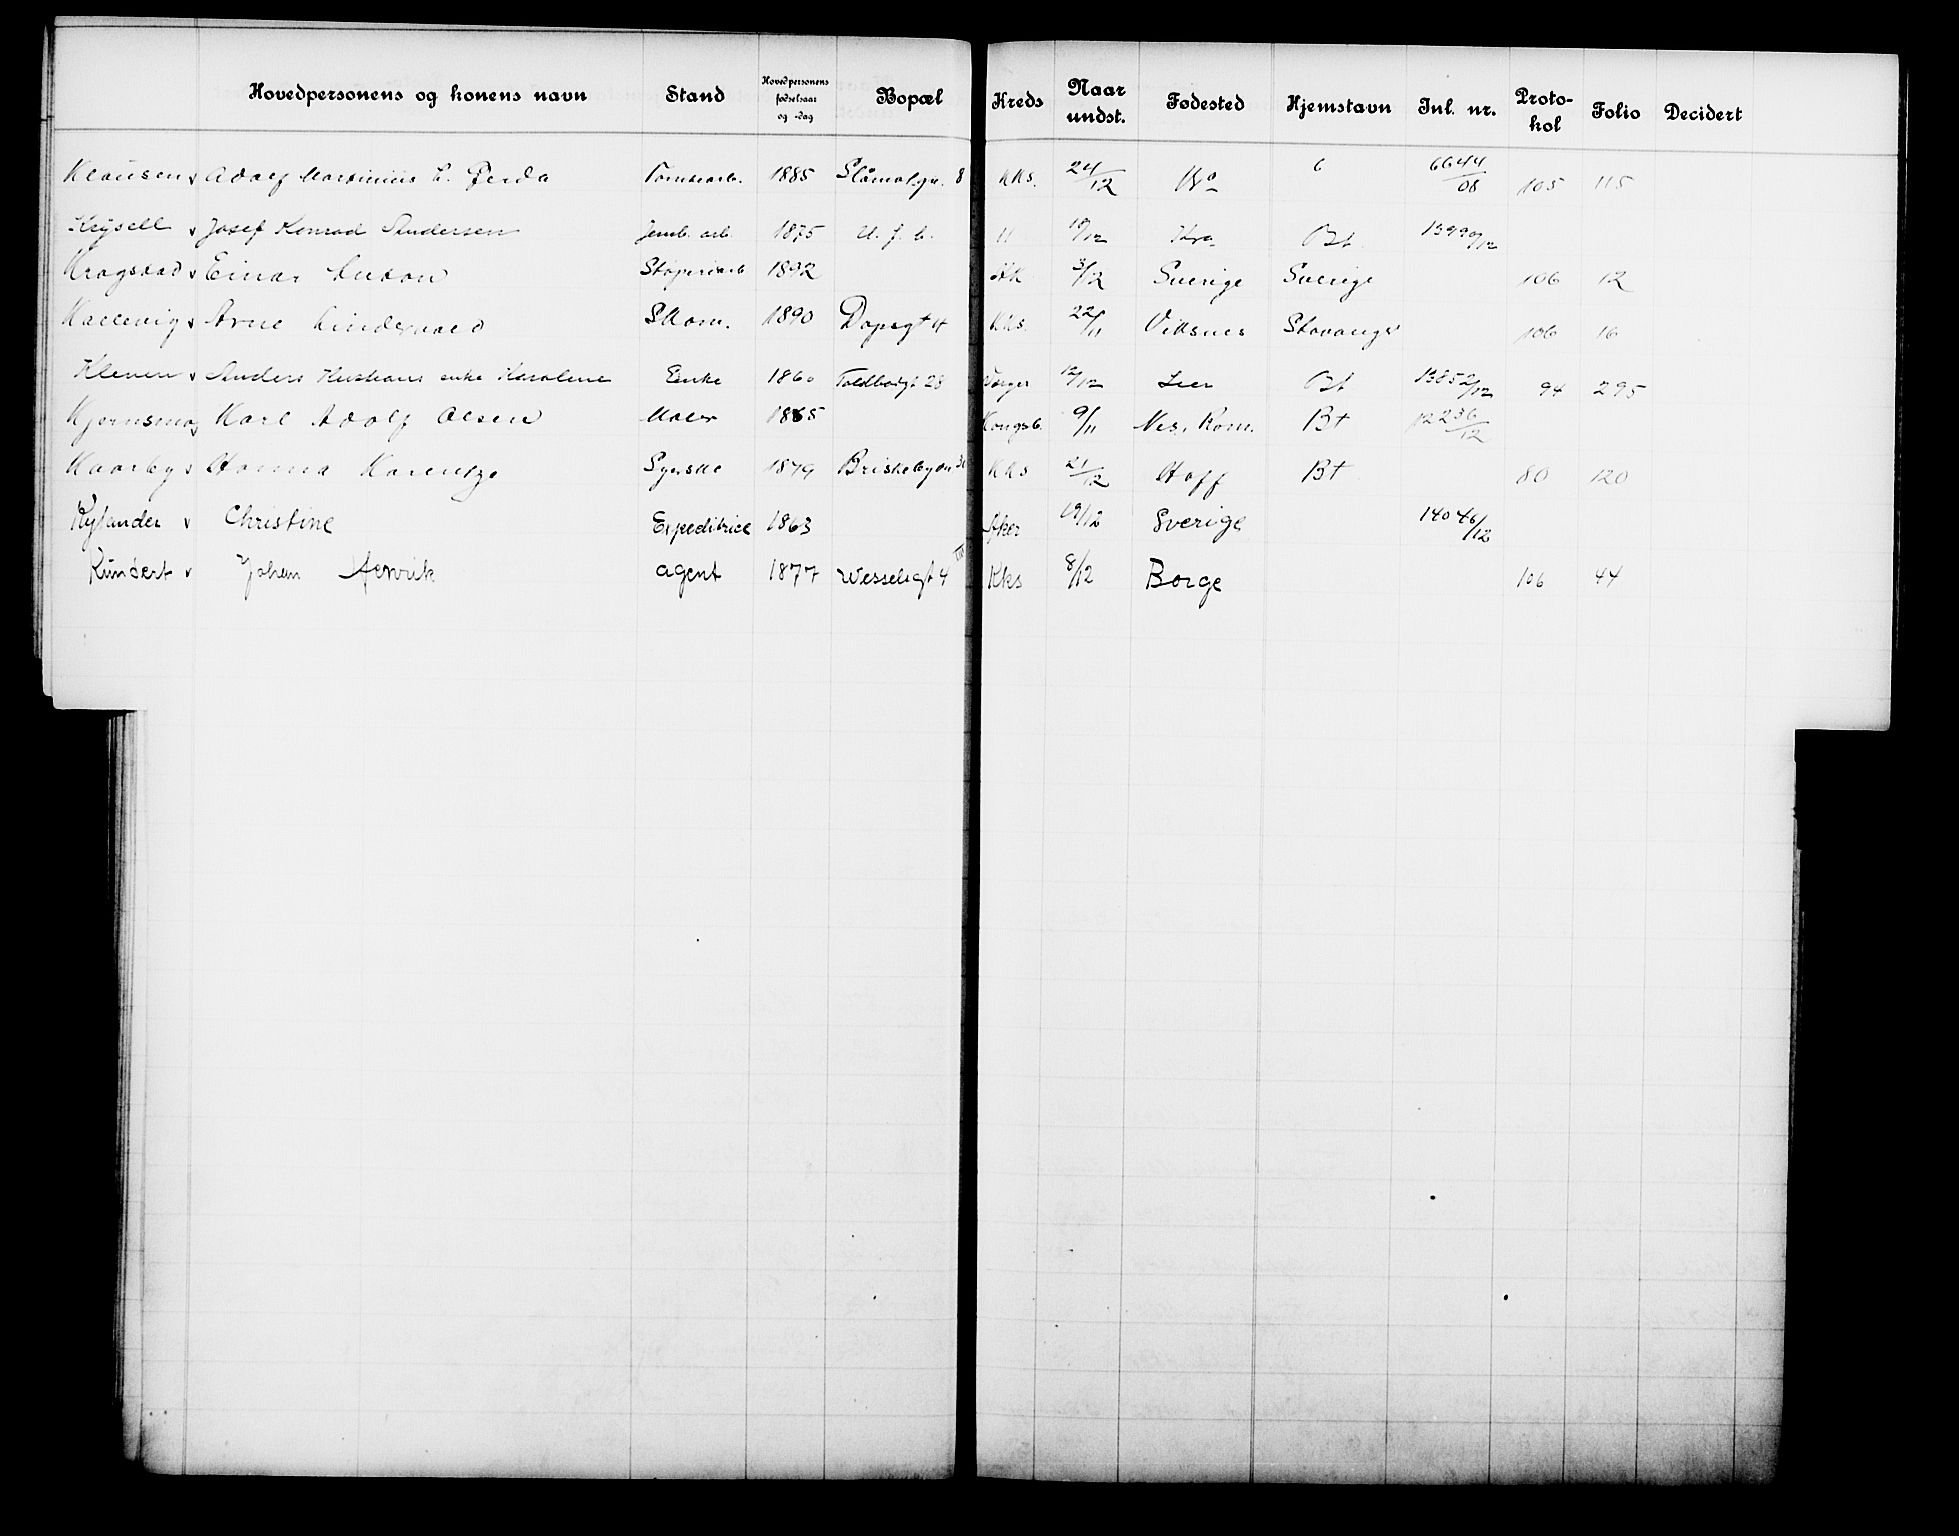 Hovedpersonens og konens navn Stand Hovedpersonens fødselsaar og -dag Bopæl Kreds Naar undst. Fødested Hjemstavn Inl. nr. Protokol Folio Decidert
Klausen Adolf Martinius L. Gerda 1885 8 Kks. 24/12 6 6644/08 105 115
Krysell Josef Konrad Andersen Jernb. arb. 1875 U. f. b. " 19/12 Kra Bt 13990/12
Krogstad Einar Anton Støperiarb 1892 3/12 Sverige Sverige 106 12
Kallevig Arne Skom. 1890 Dopsgt 4 Kks. 22/11 Viksnes Stavanger 106 16
Kleven Anders enke Karoline Enke 1860 Toldbodgt 28 12/12 Lier Bt 13852/12 94 295
Karl Adolf Olsen Maler 1865 Kongsb. 9/11 Nes, Rom. Bt 12236/12
Kaarby Hanna Syerske 1879 Briskebyvn Kks 21/12 Hoff Bt 80 120
Kylander Christine Expeditrice 1863 Aker 19/12 Sverige 14046/12
Kundert Johan Henrik agent 1877 Wesselsgt 4 III Kks 8/12 Borge 106 44